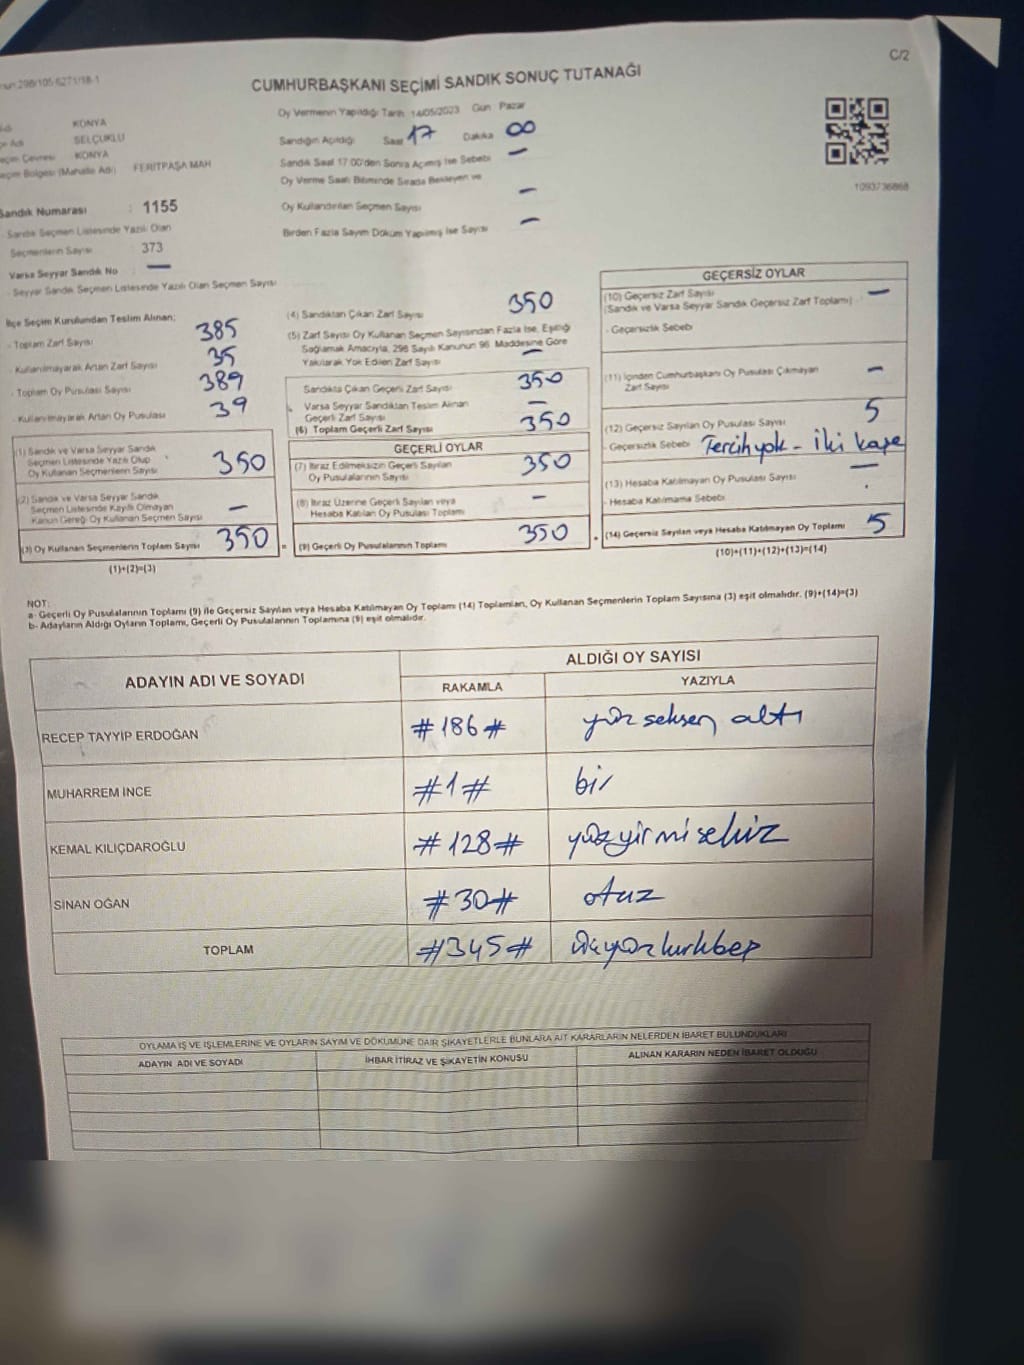 C/2
CUMHURBAŞKANI SEÇİMİ SANDIK SONUÇ TUTANAĞI
KONYA
SELÇUKLU
KONYA
FERİTPAŞA MAH
Sandık Numarası : 1155
Sandık Seçmen Listesinde Yazılı Olan
Seçmenlerin Sayısı : 373
Varsa Seyyar Sandık No : —
- Seyyar Sandık Seçmen Listesinde Yazılı Olan Seçmen Sayısı
Oy Vermenin Yapıldığı Tarih 14/05/2023 Gün Pazar
Sandığın Açıldığı Saat 17 Dakika 00
Sandık Saat 17:00'den Sonra Açmış İse Sebebi —
Oy Verme Saati Bitiminde Sırada Bekleyen ve
Oy Kullandırılan Seçmen Sayısı —
Birden Fazla Sayım Döküm Yapılmış İse Sayısı —
1093736868
İlçe Seçim Kurulundan Teslim Alınan;
- Toplam Zarf Sayısı 385
- Kullanılmayarak Artan Zarf Sayısı 35
- Toplam Oy Pusulası Sayısı 389
- Kullanılmayarak Artan Oy Pusulası 39
(1) Sandık ve Varsa Seyyar Sandık
Seçmen Listesinde Yazılı Olup
Oy Kullanan Seçmenlerin Sayısı 350
(2) Sandık ve Varsa Seyyar Sandık
Seçmen Listesinde Kayıtlı Olmayan
Kanun Gereği Oy Kullanan Seçmen Sayısı —
(3) Oy Kullanan Seçmenlerin Toplam Sayısı 350
(1)+(2)=(3)
(4) Sandıktan Çıkan Zarf Sayısı 350
(5) Zarf Sayısı Oy Kullanan Seçmen Sayısından Fazla İse, Eşitliği
Sağlamak Amacıyla, 298 Sayılı Kanunun 98. Maddesine Göre
Yakılarak Yok Edilen Zarf Sayısı —
Sandıkta Çıkan Geçerli Zarf Sayısı 350
Varsa Seyyar Sandıktan Teslim Alınan
Geçerli Zarf Sayısı —
(6) Toplam Geçerli Zarf Sayısı 350
GEÇERLİ OYLAR
(7) İtiraz Edilmeksizin Geçerli Sayılan
Oy Pusulalarının Sayısı 350
(8) İtiraz Üzerine Geçerli Sayılan veya
Hesaba Katılan Oy Pusulası Toplamı —
(9) Geçerli Oy Pusulalarının Toplamı 350
GEÇERSİZ OYLAR
(10) Geçersiz Zarf Sayısı —
(Sandık ve Varsa Seyyar Sandık Geçersiz Zarf Toplamı)
- Geçersizlik Sebebi
(11) İçinden Cumhurbaşkanı Oy Pusulası Çıkmayan
Zarf Sayısı —
(12) Geçersiz Sayılan Oy Pusulası Sayısı 5
- Geçersizlik Sebebi Tercih yok - İki kaşe
(13) Hesaba Katılmayan Oy Pusulası Sayısı —
- Hesaba Katılmama Sebebi
(14) Geçersiz Sayılan veya Hesaba Katılmayan Oy Toplamı 5
(10)+(11)+(12)+(13)=(14)
NOT:
a- Geçerli Oy Pusulalarının Toplamı (9) ile Geçersiz Sayılan veya Hesaba Katılmayan Oy Toplamı (14) Toplamları, Oy Kullanan Seçmenlerin Toplam Sayısına (3) eşit olmalıdır. (9)+(14)=(3)
b- Adayların Aldığı Oyların Toplamı, Geçerli Oy Pusulalarının Toplamına (9) eşit olmalıdır.
ADAYIN ADI VE SOYADI
ALDIĞI OY SAYISI
RAKAMLA YAZIYLA
RECEP TAYYİP ERDOĞAN #186# yüz seksen altı
MUHARREM İNCE #1# bir
KEMAL KILIÇDAROĞLU #128# yüzyirmisekiz
SİNAN OĞAN #30# otuz
TOPLAM #345# üçyüzkırkbeş
OYLAMA İŞ VE İŞLEMLERİNE VE OYLARIN SAYIM VE DÖKÜMÜNE DAİR ŞİKAYETLERLE BUNLARA AİT KARARLARIN NELERDEN İBARET BULUNDUKLARI
ADAYIN ADI VE SOYADI İHBAR İTİRAZ VE ŞİKAYETİN KONUSU ALINAN KARARIN NEDEN İBARET OLDUĞU